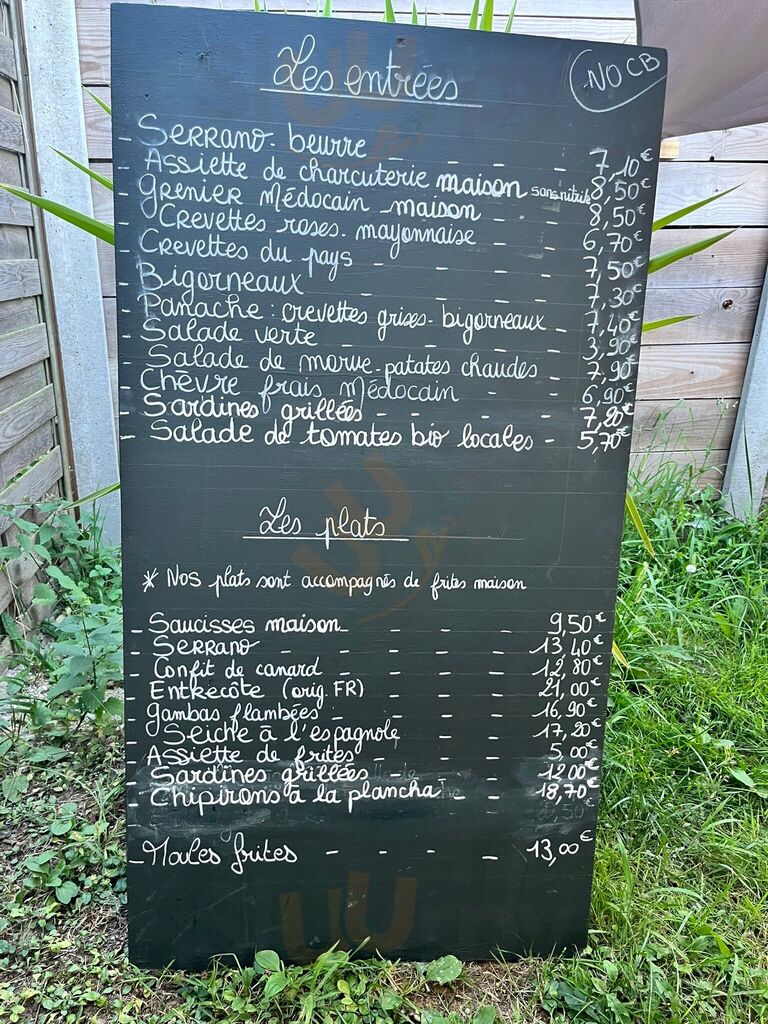 Les entrées
NO CB
- Serrano - beurre - - - - 7,10€
- Assiette de charcuterie maison sans nitrite 8,50€
- Grenier Médocain - maison - - 8,50€
- Crevettes roses - mayonnaise - - 6,70€
- Crevettes du pays - - - - 7,50€
- Bigorneaux - - - - - 7,30€
- Panache : crevettes grises - bigorneaux - 7,40€
- Salade verte - - - - - 3,90€
- Salade de morue - patates chaudes - 7,90€
- Chèvre frais Médocain - - - 6,90€
- Sardines grillées - - - - 7,20€
- Salade de tomates bio locales - 5,70€
Les plats
* Nos plats sont accompagnés de frites maison
- Saucisses maison - - - - 9,50€
- Serrano - - - - - 13,40€
- Confit de canard - - - - 12,80€
- Entrecôte (orig. FR) - - - 21,00€
- Gambas flambées - - - - 16,90€
- Seiche à l'espagnole - - 17,20€
- Assiette de frites - - - 5,00€
- Sardines grillées - - - 12,00€
- Chipirons à la plancha - - 18,70€
- Moules frites - - - - 13,00€